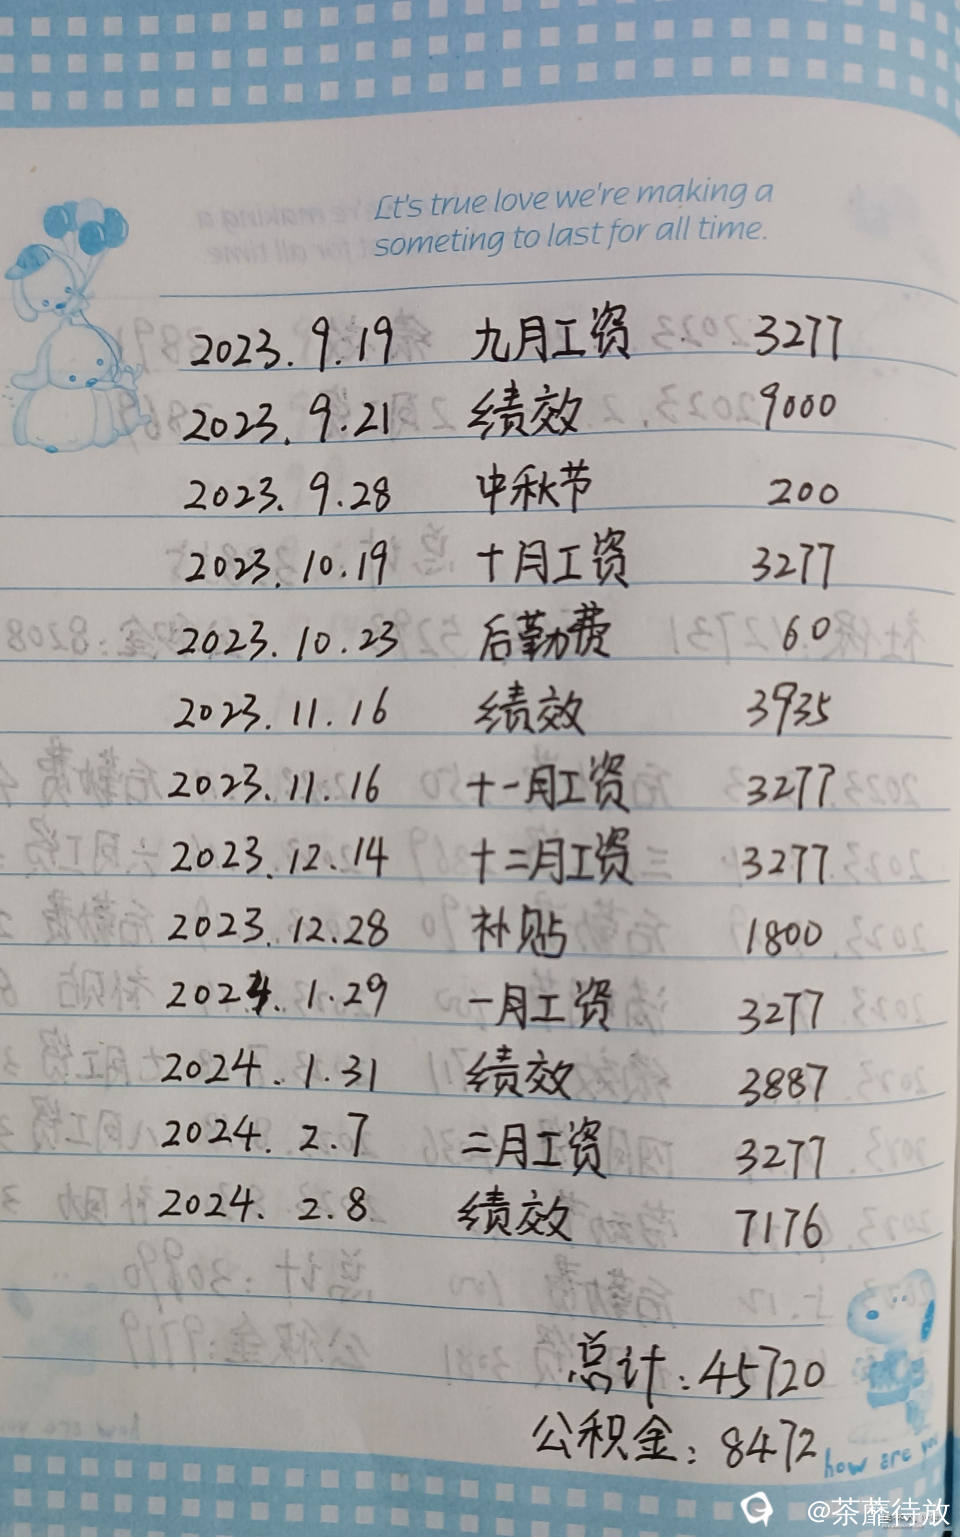 Let's true love we're making a
someting to last for all time.
2023.9.19 九月工资 3277
2023.9.21 绩效 9000
2023.9.28 中秋节 200
2023.10.19 十月工资 3277
2023.10.23 后勤费 60
2023.11.16 绩效 3935
2023.11.16 十一月工资 3277
2023.12.14 十二月工资 3277
2023.12.28 补贴 1800
2024.1.29 一月工资 3277
2024.1.31 绩效 3887
2024.2.7 二月工资 3277
2024.2.8 绩效 7176
总计:45720
公积金:8472
how are you
@茶蘼待放